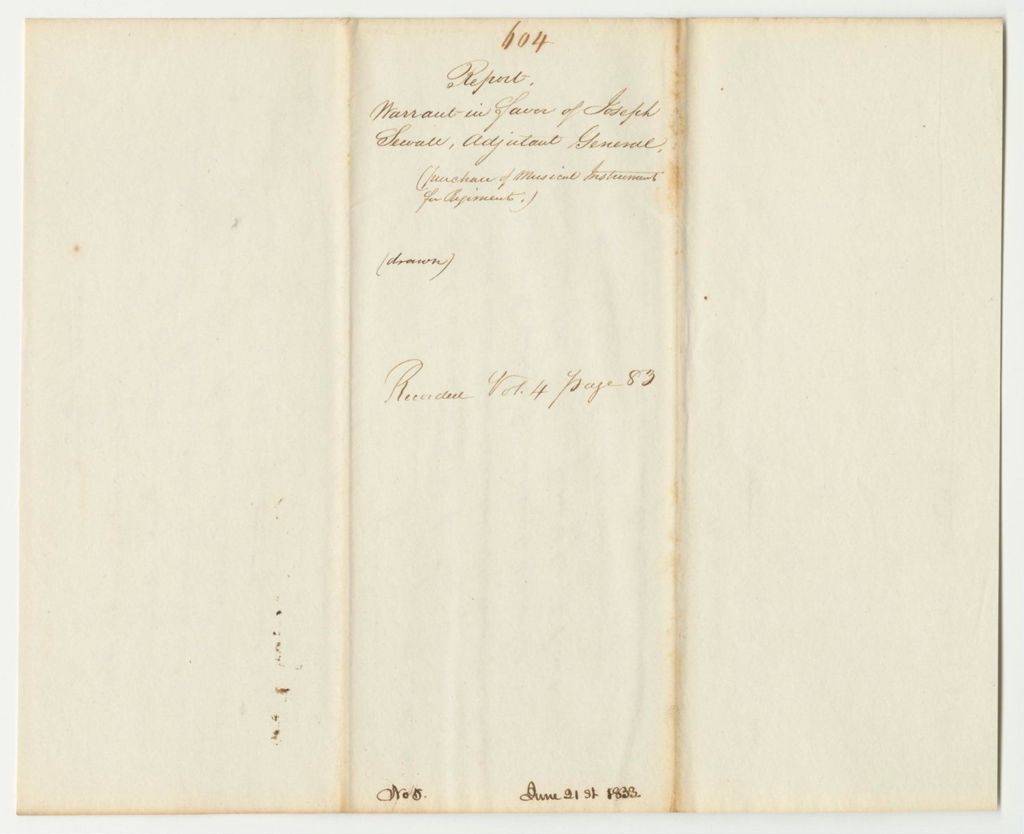 604
Report.
Warrant in favor of Joseph
Sewall, Adjutant General.
(purchase of Musical Instruments
for Regiments.)
(drawn)
Recorded Vol. 4 page 83
No 5.
June 21st 1833